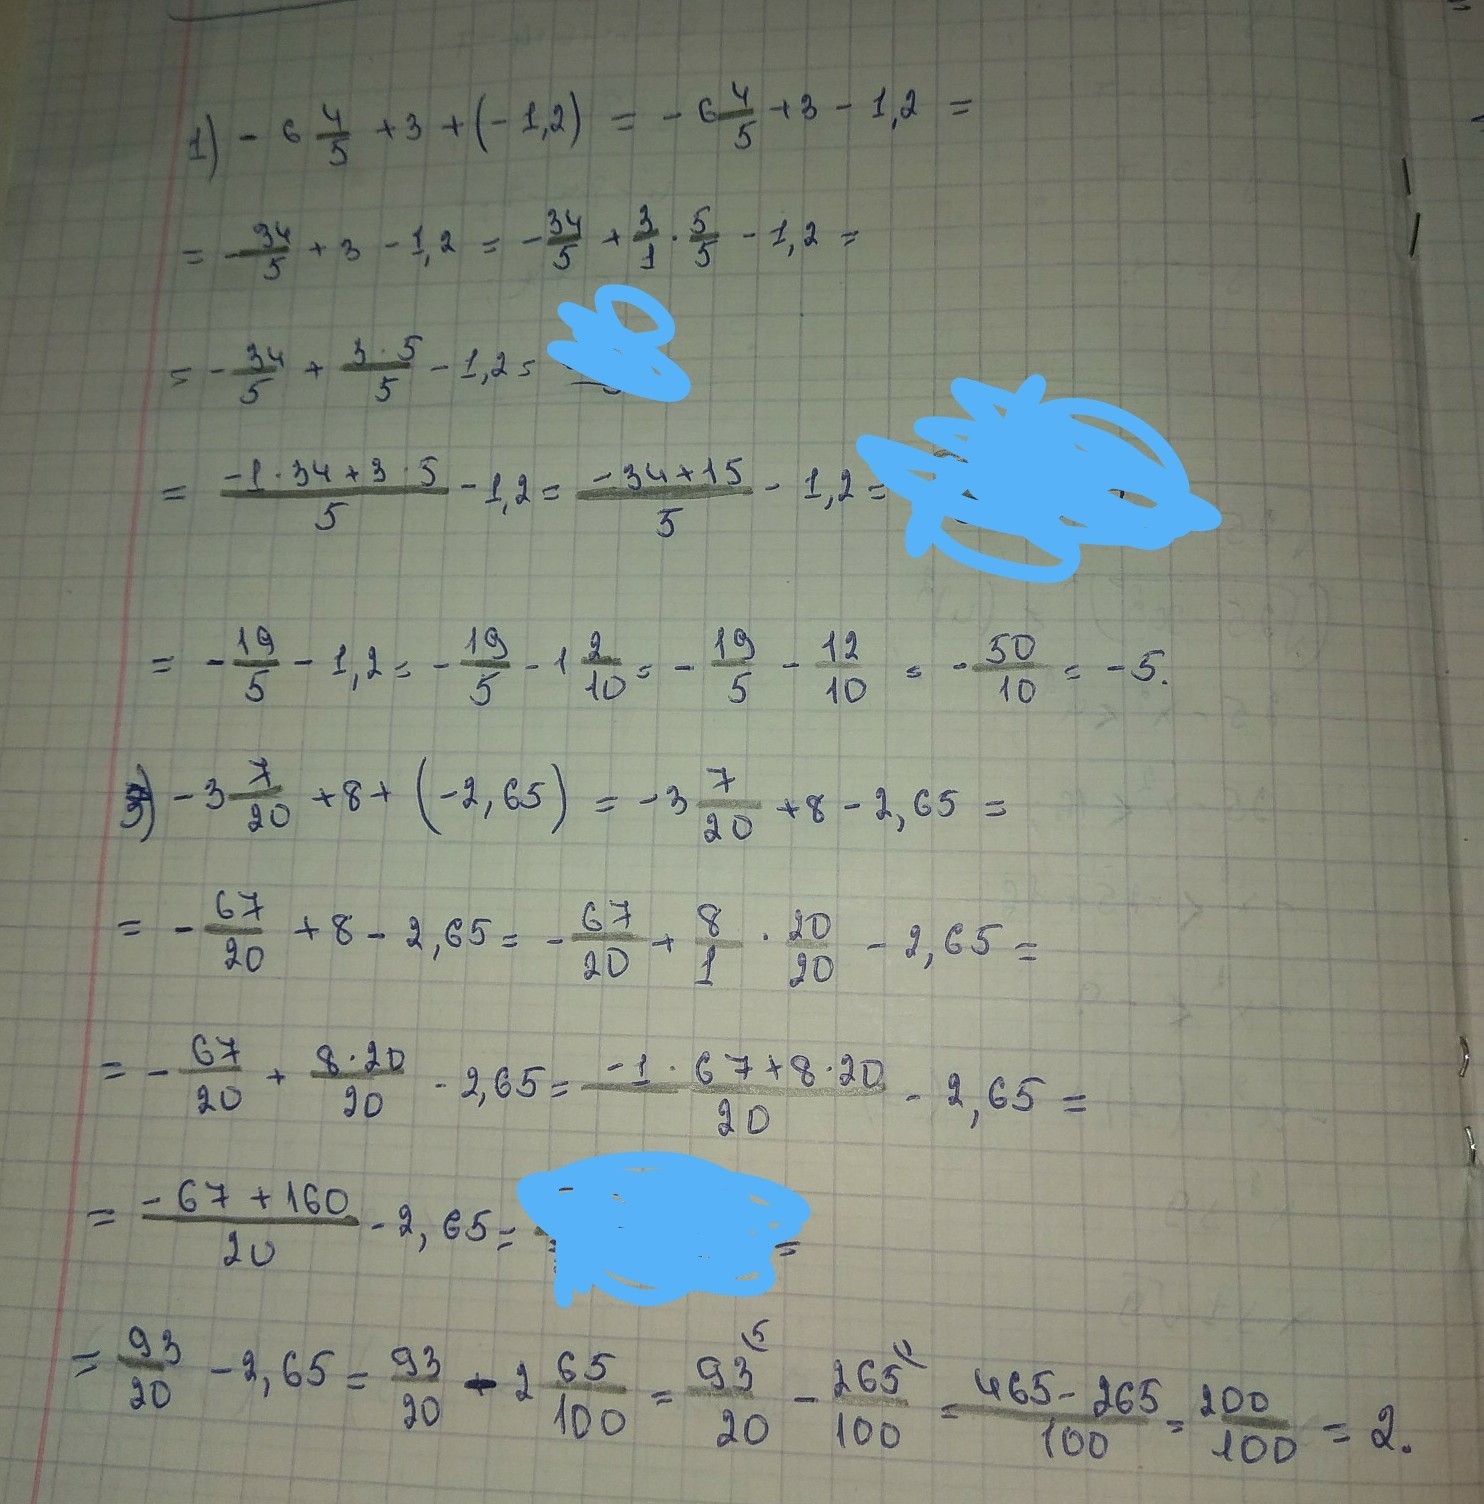 1) - 6 4/5 + 3 + (- 1,2) = - 6 4/5 + 3 - 1,2 =
= - 34/5 + 3 - 1,2 = - 34/5 + 3/1 · 5/5 - 1,2 =
= - 34/5 + 3·5/5 - 1,2 =
= -1·34+3·5/5 - 1,2 = -34+15/5 - 1,2 =
= - 19/5 - 1,2 = - 19/5 - 1 2/10 = - 19/5 - 12/10 = - 50/10 = -5.
3) - 3 7/20 + 8 + (-2,65) = - 3 7/20 + 8 - 2,65 =
= - 67/20 + 8 - 2,65 = - 67/20 + 8/1 · 20/20 - 2,65 =
= - 67/20 + 8·20/20 - 2,65 = -1·67+8·20/20 - 2,65 =
= -67+160/20 - 2,65 = =
= 93/20 - 2,65 = 93/20 - 2 65/100 = 93(5/20 - 265(1/100 = 465-265/100 = 200/100 = 2.